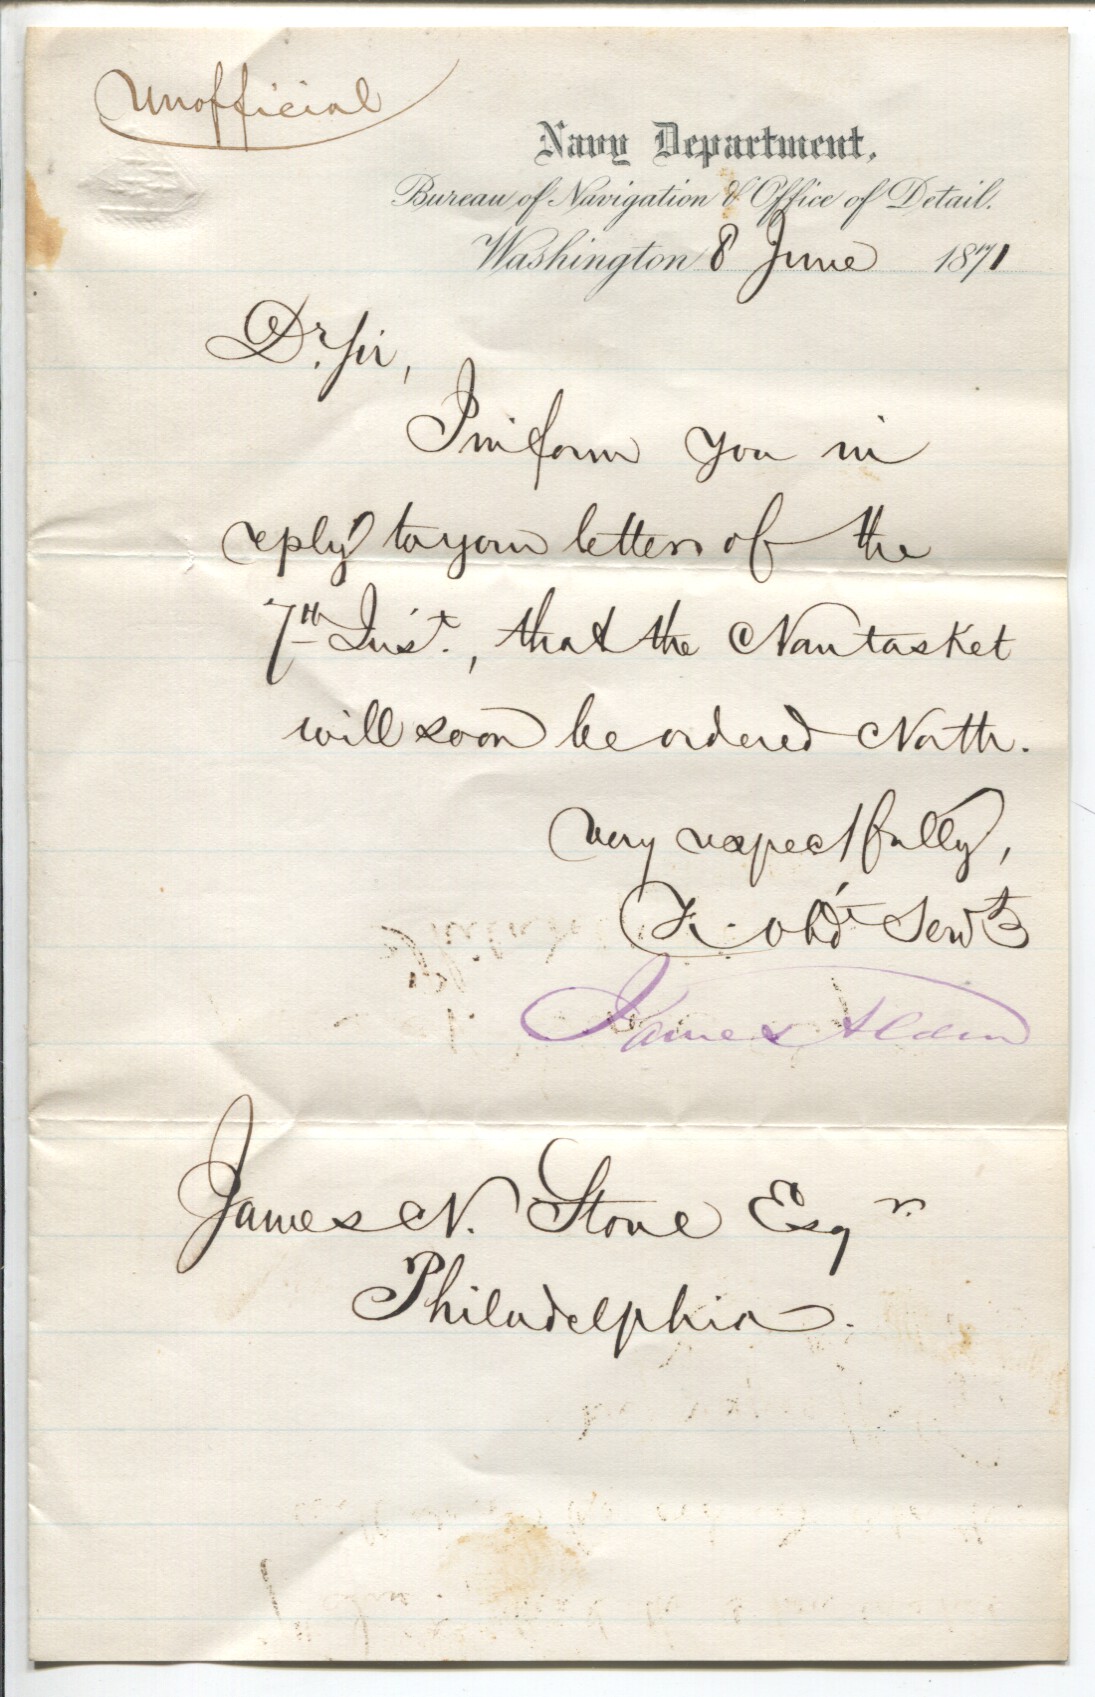 Unofficial
Navy Department,
Bureau of Navigation & Office of Detail.
Washington 8 June 1871
Dr. Sir,
I inform you in
reply to your letter of the
7th Inst., that the Nantasket
will soon be ordered North.
Very respectfully,
Yr. obdt Servt
James Alden
James N. Stone Esqr.
Philadelphia.